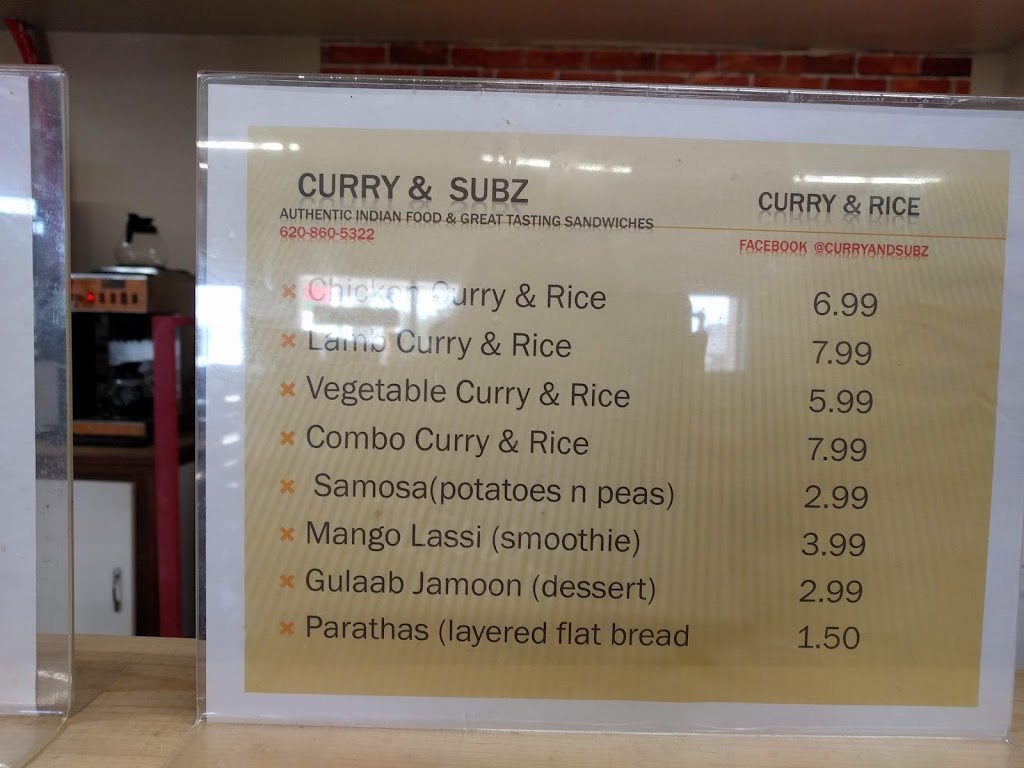 CURRY & SUBZ
AUTHENTIC INDIAN FOOD & GREAT TASTING SANDWICHES
620-860-5322
CURRY & RICE
FACEBOOK @CURRYANDSUBZ
Chicken Curry & Rice 6.99
Lamb Curry & Rice 7.99
Vegetable Curry & Rice 5.99
Combo Curry & Rice 7.99
Samosa(potatoes n peas) 2.99
Mango Lassi (smoothie) 3.99
Gulaab Jamoon (dessert) 2.99
Parathas (layered flat bread 1.50